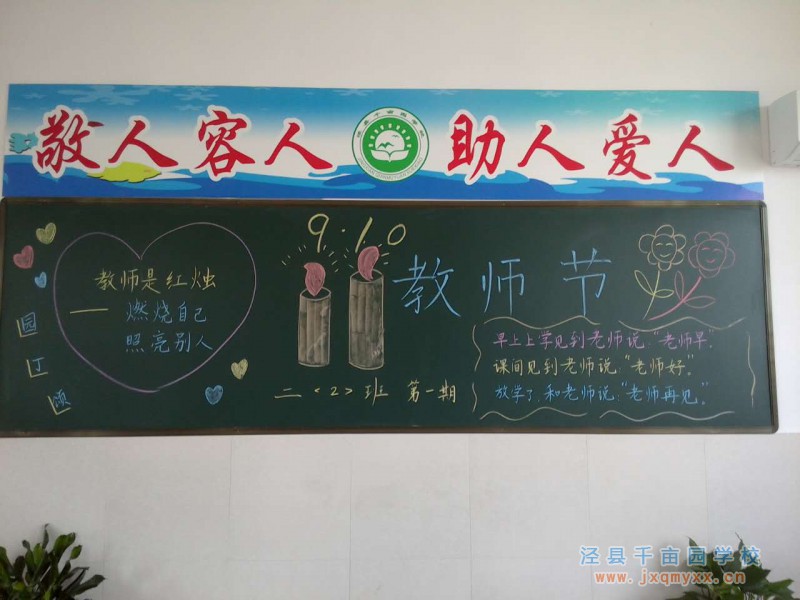 敬人容人 助人爱人
9·10
教师节
教师是红烛
——燃烧自己
照亮别人
园丁颂
早上上学见到老师说:“老师早”.
课间见到老师说:“老师好”.
放学了,和老师说:“老师再见”.
二<2>班 第一期
泾县千亩园学校
www.jxqmyxx.cn